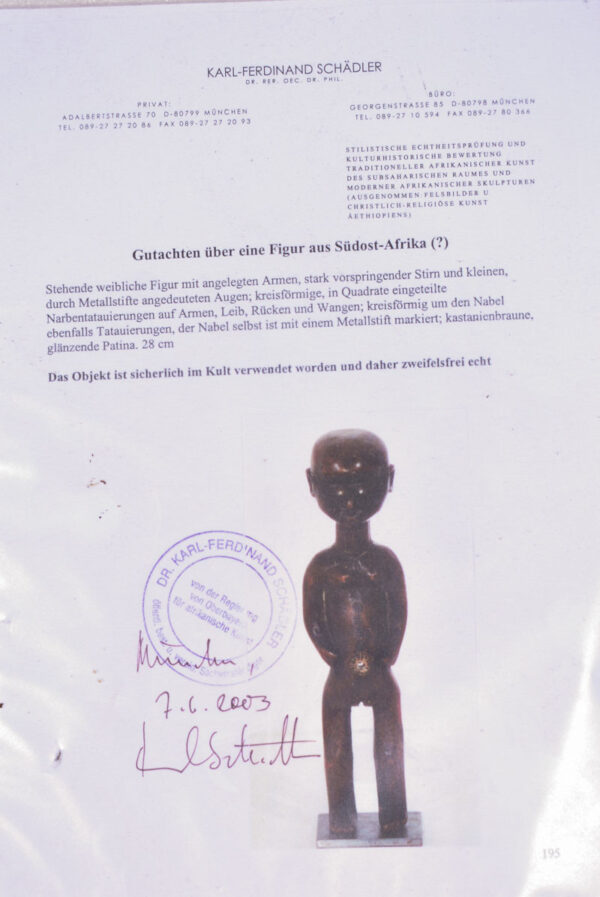 KARL-FERDINAND SCHÄDLER
DR. RER. OEC. DR. PHIL.
PRIVAT:
ADALBERTSTRASSE 70 D-80799 MÜNCHEN
TEL. 089-27 27 20 86 FAX 089-27 27 20 93
BÜRO:
GEORGENSTRASSE 85 D-80798 MÜNCHEN
TEL. 089-27 10 594 FAX 089-27 80 366
STILISTISCHE ECHTHEITSPRÜFUNG UND
KULTURHISTORISCHE BEWERTUNG
TRADITIONELLER AFRIKANISCHER KUNST
DES SUBSAHARISCHEN RAUMES UND
MODERNER AFRIKANISCHER SKULPTUREN
(AUSGENOMMEN FELSBILDER U
CHRISTLICH-RELIGIÖSE KUNST
ÄETHIOPIENS)
Gutachten über eine Figur aus Südost-Afrika (?)
Stehende weibliche Figur mit angelegten Armen, stark vorspringender Stirn und kleinen,
durch Metallstifte angedeuteten Augen; kreisförmige, in Quadrate eingeteilte
Narbentatauierungen auf Armen, Leib, Rücken und Wangen; kreisförmig um den Nabel
ebenfalls Tatauierungen, der Nabel selbst ist mit einem Metallstift markiert; kastanienbraune,
glänzende Patina. 28 cm
Das Objekt ist sicherlich im Kult verwendet worden und daher zweifelsfrei echt
DR. KARL-FERDINAND SCHÄDLER
von der Regierung
von Oberbayern
für afrikanische Kunst
München,
7.6.2003
195